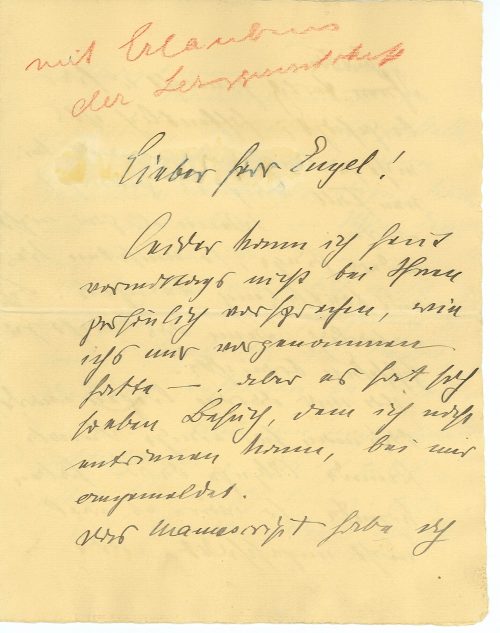 mit Erlaubnis
der
Lieber Herr Engel!
Leider kann ich heut
vormittags nicht bei Ihnen
persönlich vorsprechen, wie
ichs mir vorgenommen
hatte — , aber es hat sich
soeben Besuch, dem ich nicht
entrinnen kann, bei mir
angemeldet.
Das Manuscript habe ich